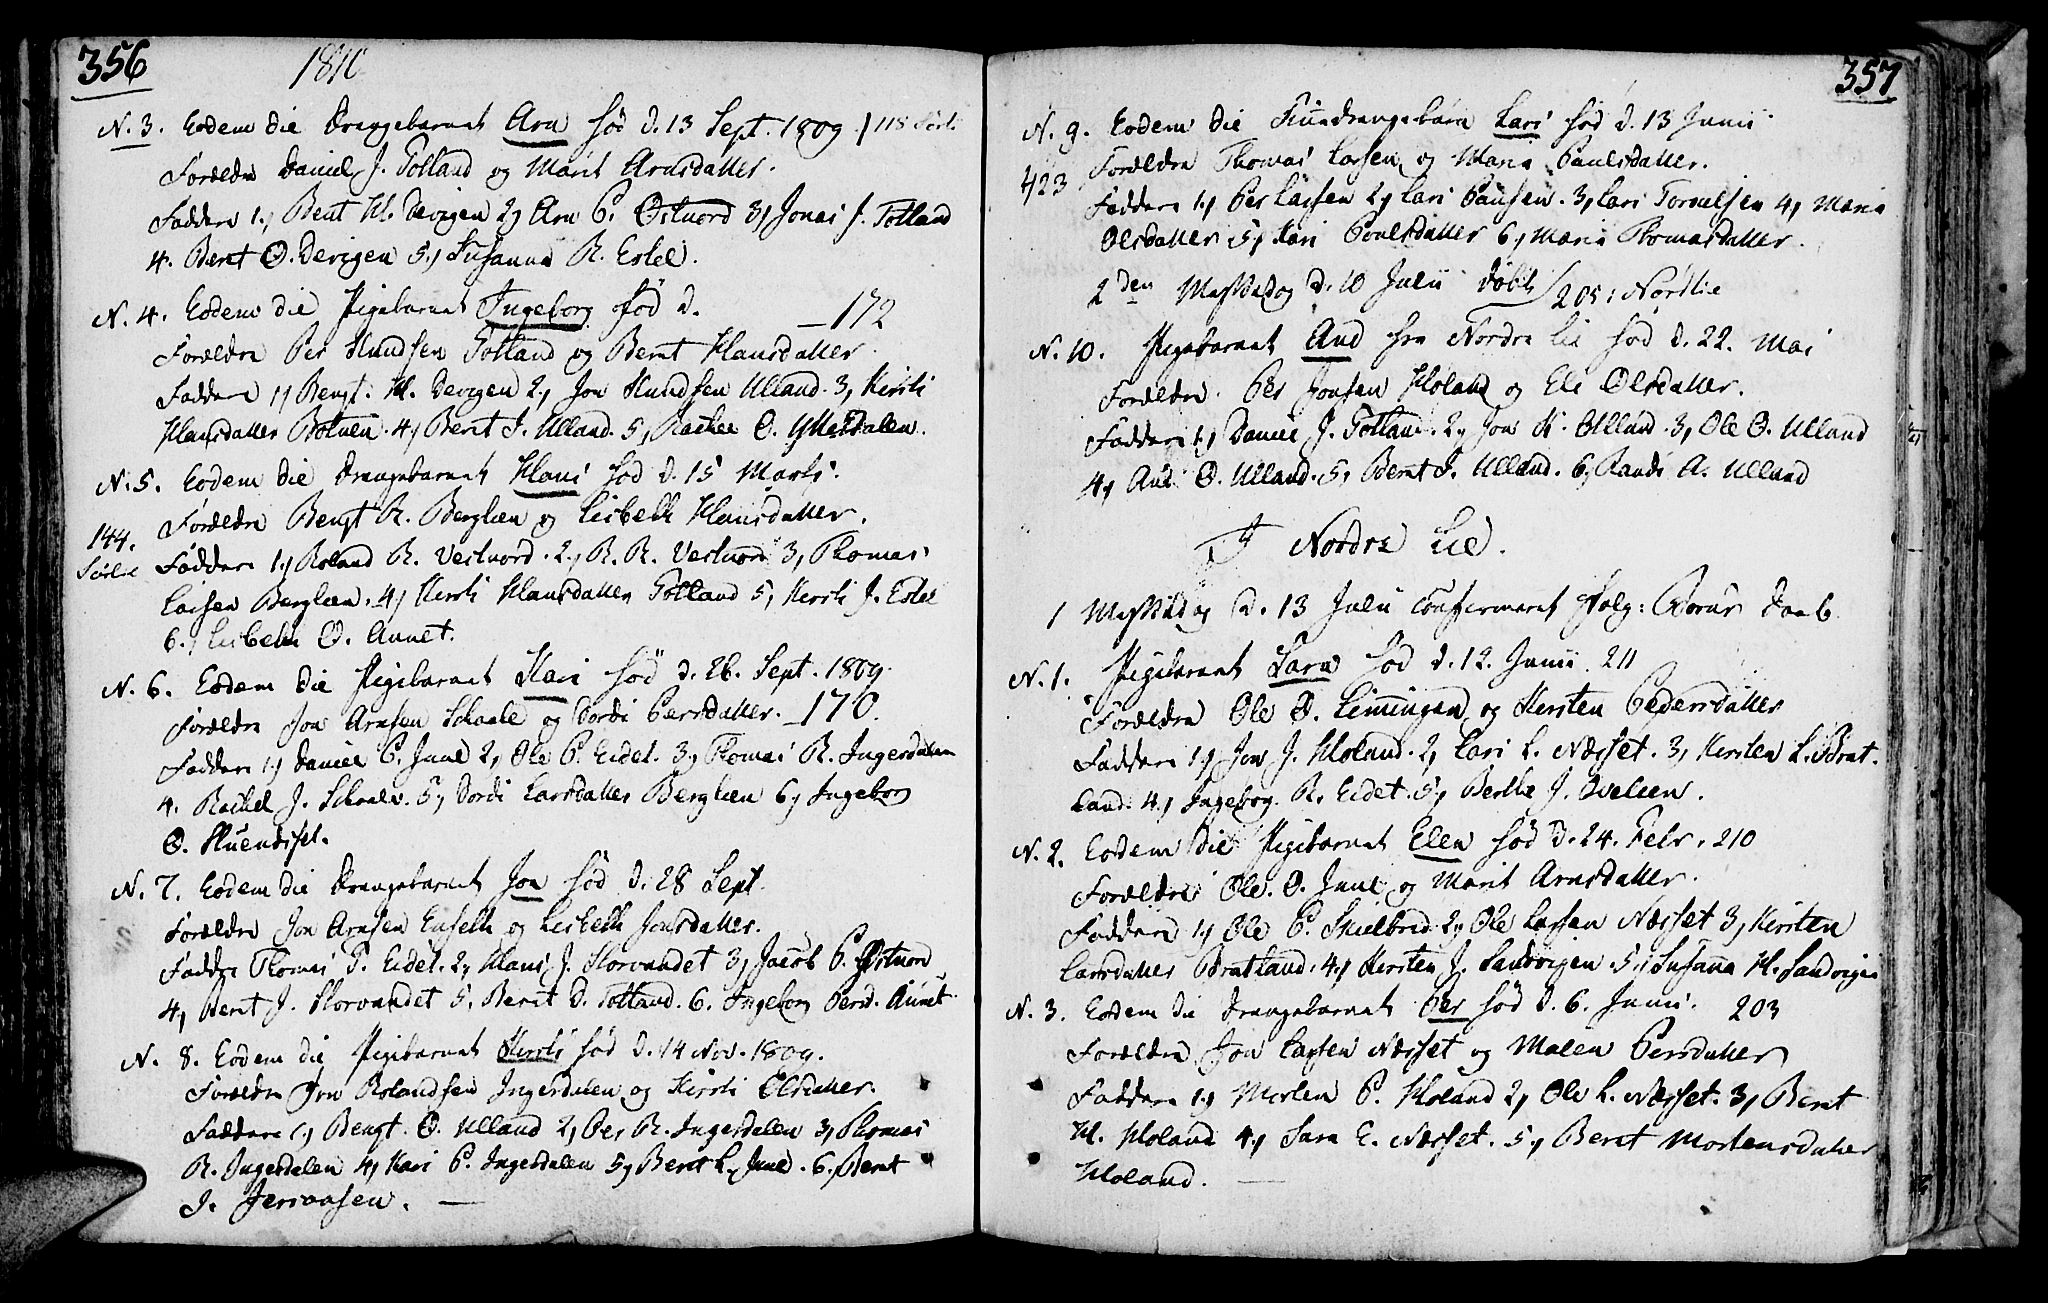 356 1810
N. 3. Eodem die Drengebarnet Arn fød d. 13 Sept. 1809 / 118 Sørli
Forældre Daniel J. Totland og Marit Arnsdatter.
Faddere 1, Bent H. Devigen 2, Arn P. Østnord 3, Jonas J. Totland
4. Beret O. Devigen 5, Susanna R. Estel.
N. 4. Eodem die Pigebarnet Ingeborg fød d. — 172
Forældre Per Knudsen Totland og Beret Hansdatter
Faddere 1, Bengt H. Devigen 2, Jon Knudsen Ulland. 3, Kirsti
Hansdatter Botnen. 4, Beret J. Ulland. 5, Rachel O. Ytterdalen.
N. 5. Eodem die Drengebarnet Hans fød d. 15 Marts.
Forældre Bengt R. Berglien og Lisbeth Hansdatter.
144. Sørlie
Faddere 1, Roland R. Vestnord. 2, R. R. Vestnord 3, Thomas
Larsen Berglien. 4, Kirsti Hansdatter Totland 5, Kirsti J. Estel
6, Lisbeth O. Aunet.
N. 6. Eodem die Pigebarnet Kari fød d. 26. Sept. 1809.
Forældre Jon Arnsen Schaale og Dordi Persdatter. — 170.
Faddere 1, Daniel P. Juul 2, Ole P. Eidet. 3, Thomas R. Ingersdalen
4. Rachel J. Schaale. 5, Dordi Larsdatter Berglien 6, Ingeborg
O. Kluendset.
N. 7. Eodem die Drengebarnet Jon fød d. 28 Sept.
Forældre Jon Arnsen og Lisbeth Jonsdatter.
Faddere Thomas P. Eidet. 2, Hans J. Storvandet 3, Jacob P. Østnord
4, Beret J. Storvandet 5, Berit D. Totland. 6. Ingeborg Persd. Aunet.
N. 8. Eodem die Pigebarnet Kirsti fød d. 14 Nov. 1809.
Forældre Jon Rolandsen Ingersdalen og Kirsti Olsdatter.
Faddere 1, Bengt O. Ulland 2, Per R. Ingersdalen 3, Thomas
R. Ingersdalen 4, Kari P. Ingersdalen 5, Beret L. Juul. 6, Beret
J. Jervaasen. —
357
N. 9. Eodem die Drengebarn Lars fød d. 13 Junii
423
Forældre Thomas Larsen og Maria Paulsdatter.
Faddere 1, Per Larsen 2, Lars Paulsen. 3, Lars Tornelsen 4, Maria
Olsdatter 5, Kari Poulsdatter 6, Maria Thomasdatter.
2den Messedag d. 10 Julii døbt / 205: Nordlie
N. 10. Pigebarnet Aud fra Nordre Lie fød d. 22. Mai
Forældre. Per Jonsen Moland og Eli Olsdatter.
Faddere 1, Daniel J. Totland. 2, Jon K. Ulland. 3, Ole O. Ulland
4, Aud O. Ulland. 5, Beret J. Ulland. 6, Randi A. Ulland
I Nordre Lie.
1 Messedag d. 13 Julii confirmeret Daab
N. 1. Pigebarnet Sara fød d. 12. Junii 211
Forældre Ole O. Limingen og Kersten Pedersdatter
Faddere 1, Jon J. Moland. 2, Lars L. Næsset. 3, Kersten L. Brat-
land. 4, Ingeborg R. Eidet. 5, Berthe J. Qvelien.
N. 2. Eodem die Pigebarnet Elen fød d. 24. Febr. 210
Forældre Ole O. Juul og Marit Arnsdatter.
Faddere 1, Ole P. Skielbred 2, Ole Larsen Næsset 3, Kersten
Larsdatter Bratland. 4, Kersten J. Sandvigen. 5, Susanna H. Sandvigen
N. 3. Eodem die Drengebarnet Per fød d. 6. Junii. 203
Forældre Jon Larsen Næsset og Malen Persdatter
Faddere 1, Morten P. Moland 2, Ole L. Næsset. 3, Beret
H. Moland 4, Sara E. Næsset. 5, Beret Mortensdatter
Moland. —